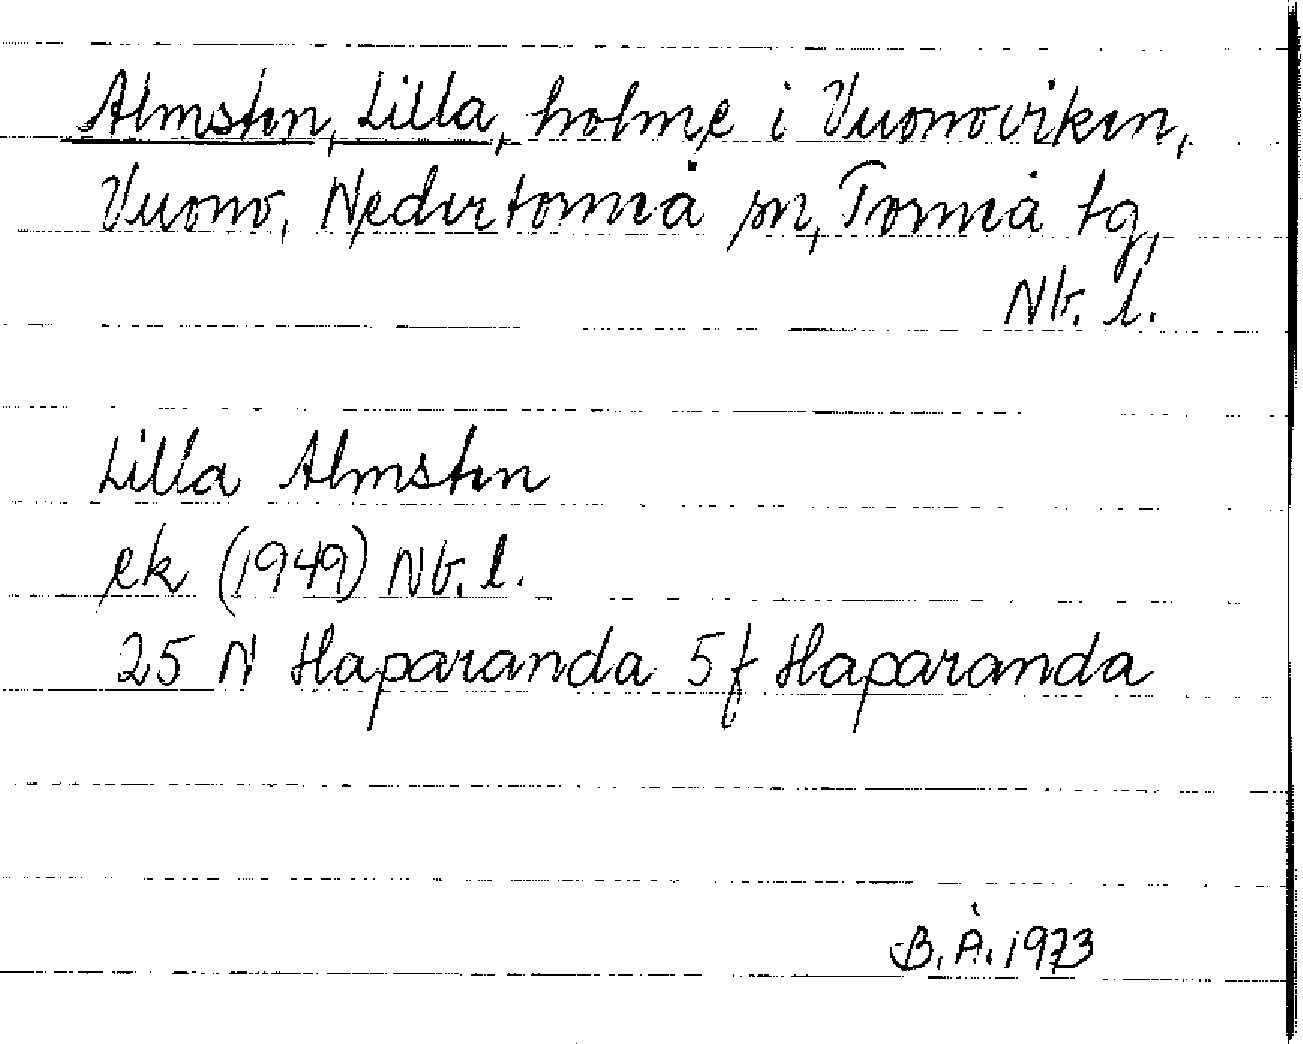 Almsten, Lilla, holme i Vuonoviken,
Vuono, Nedertorneå sn, Torneå tg,
Nb. l.
Lilla Almsten
ek (1949) Nb. l.
25 N Haparanda 5f Haparanda
B. Å. 1973